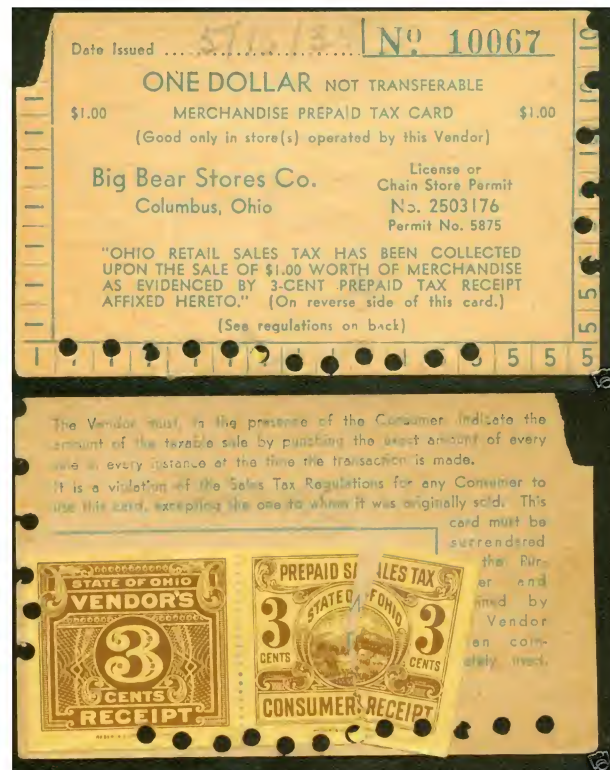 Date Issued
Nº 10067
ONE DOLLAR NOT TRANSFERABLE
$1.00 MERCHANDISE PREPAID TAX CARD $1.00
(Good only in store(s) operated by this Vendor)
Big Bear Stores Co.
Columbus, Ohio
License or
Chain Store Permit
No. 2503176
Permit No. 5875
"OHIO RETAIL SALES TAX HAS BEEN COLLECTED
UPON THE SALE OF $1.00 WORTH OF MERCHANDISE
AS EVIDENCED BY 3-CENT PREPAID TAX RECEIPT
AFFIXED HERETO." (On reverse side of this card.)
(See regulations on back)
5 5 5
5
5
10
The Vendor must, in the presence of the Consumer indicate the
amount of the taxable sale by punching the exact amount of every
sale in every instance at the time the transaction is made.
It is a violation of the Sales Tax Regulations for any Consumer to
use this card, excepting the one to whom it was originally sold. This
card must be
surrendered
the Pur-
er and
ined by
Vendor
en com-
etely used.
1 STATE OF OHIO 1
VENDOR'S
3
CENTS
RECEIPT
PREPAID SALES TAX
STATE OF OHIO
3 CENTS
3 CENTS
CONSUMER'S RECEIPT